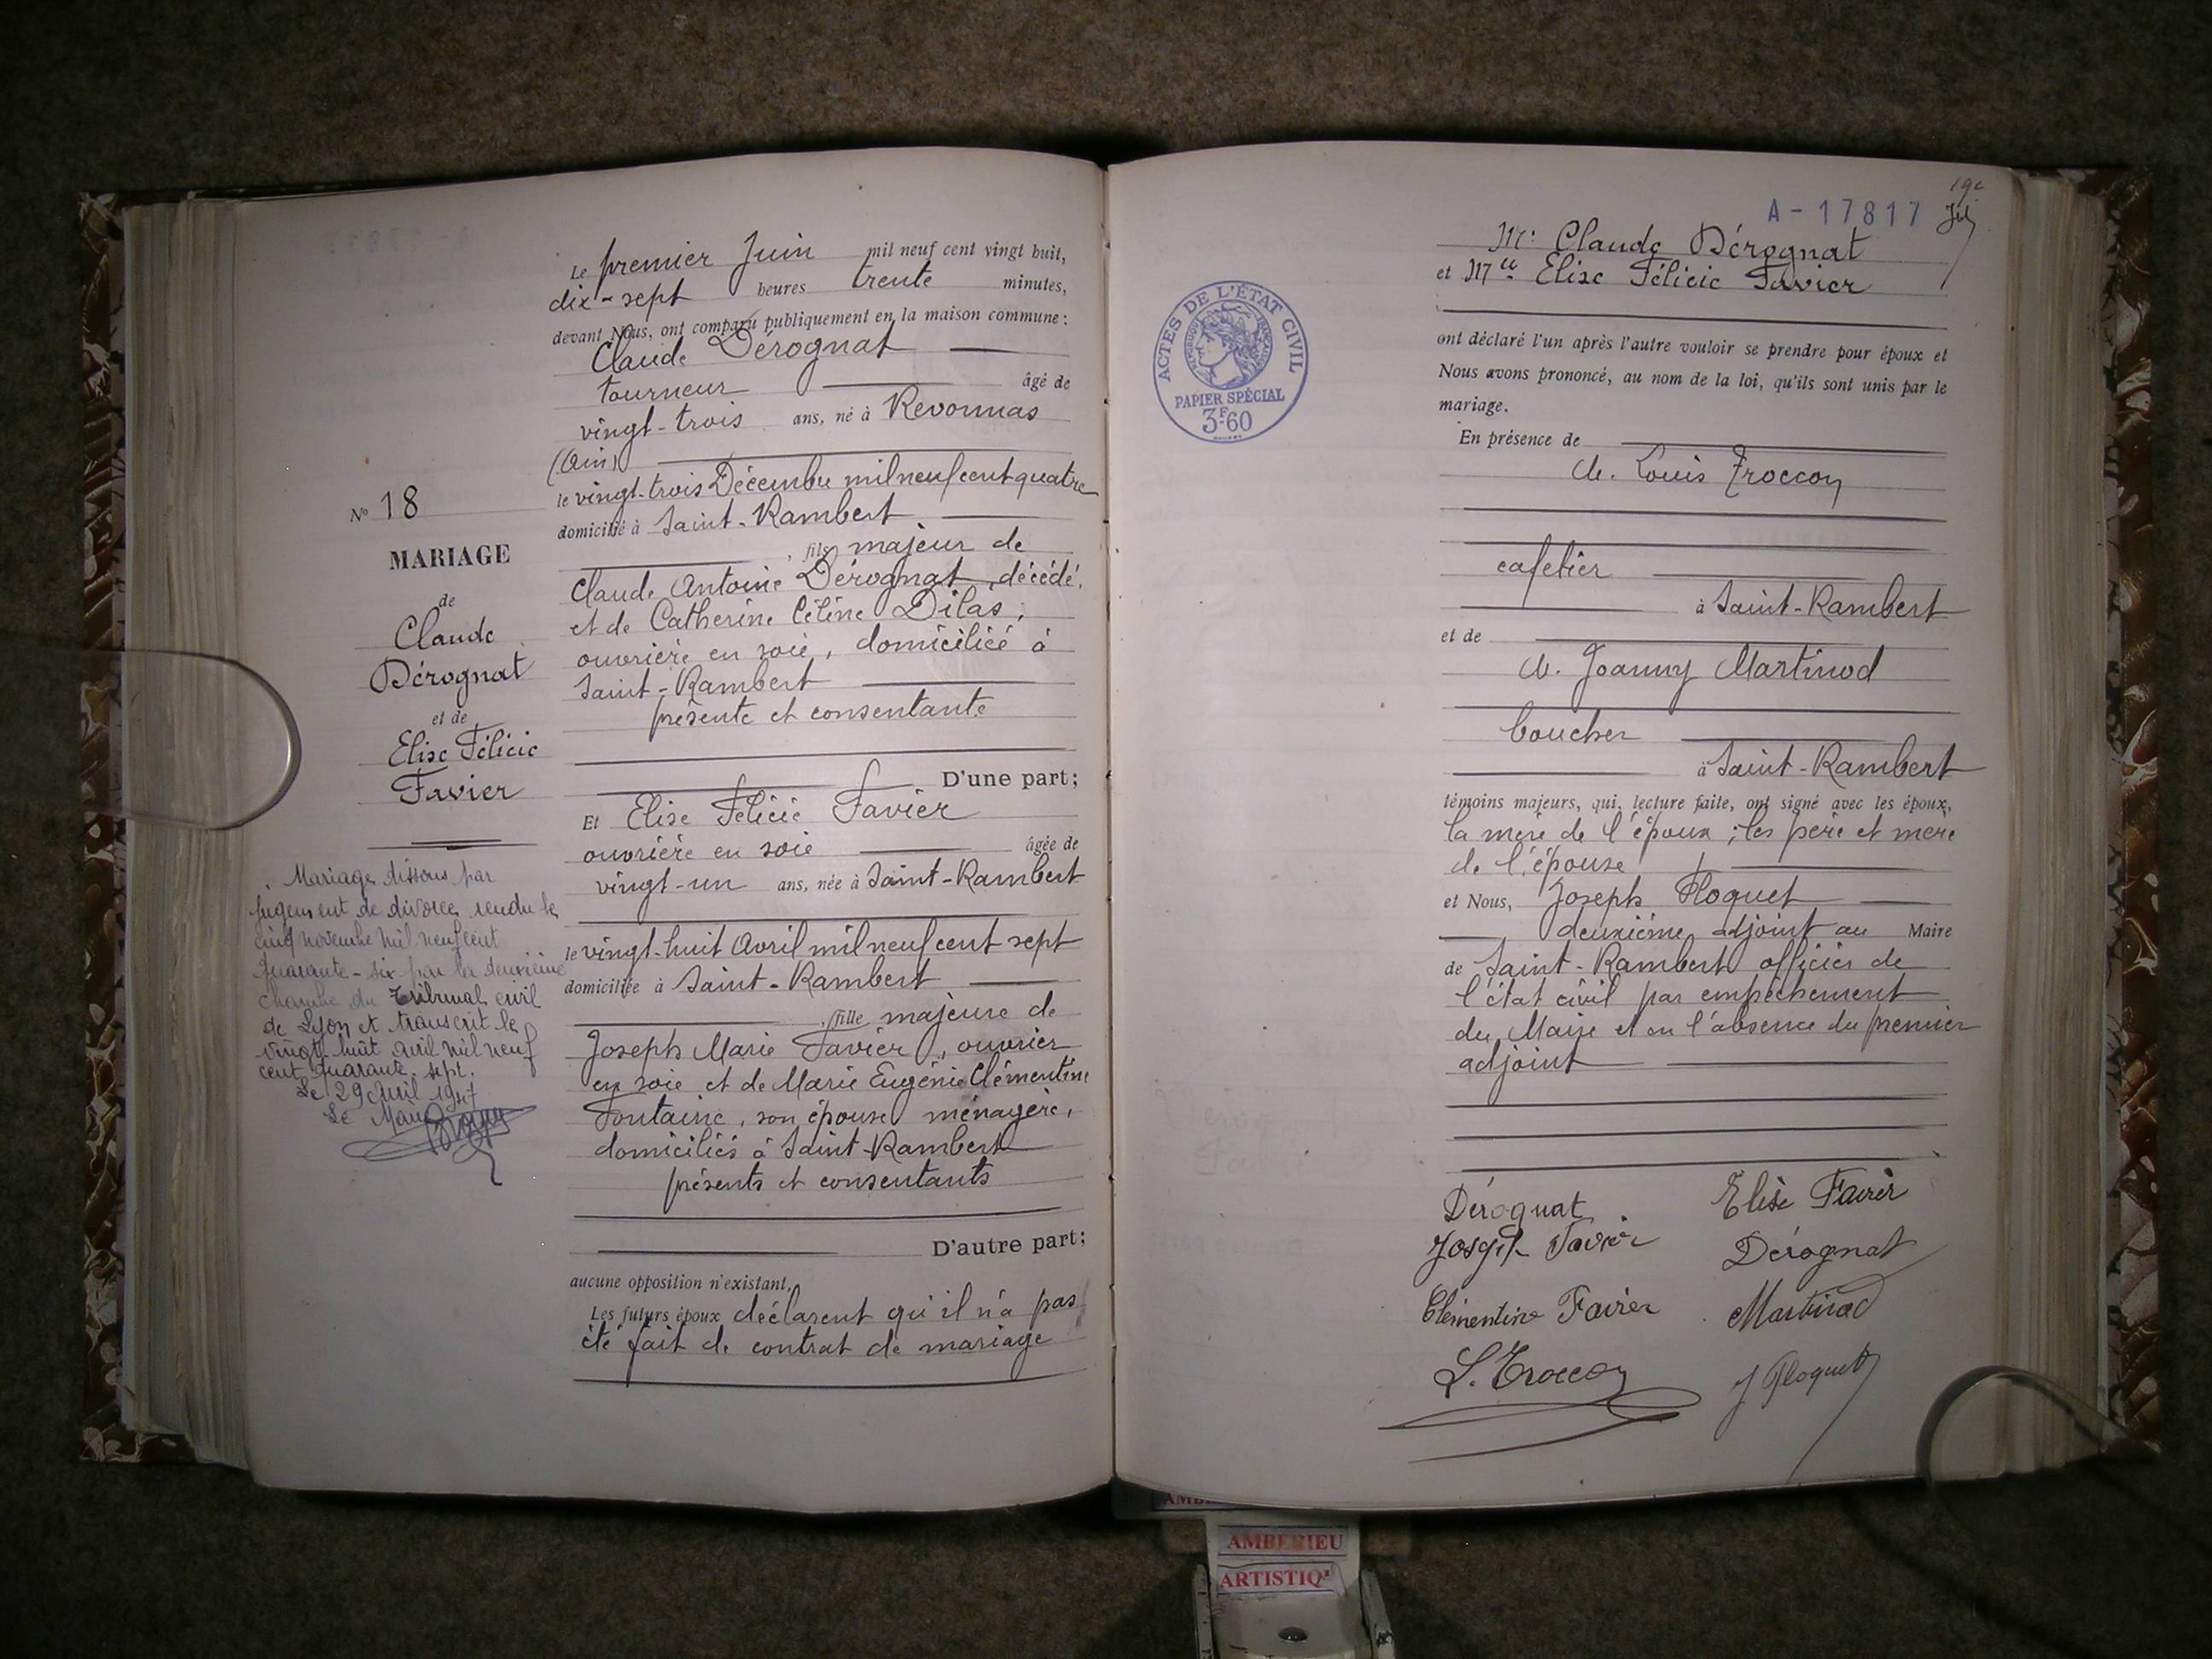 Le premier Juin mil neuf cent vingt huit,
dix-sept heures trente minutes,
devant Nous, ont comparu publiquement en la maison commune :
Claude Dérognat
tourneur âgé de
vingt-trois ans, né à Revonnas
(Ain)
le vingt-trois Décembre mil neuf cent quatre
domicilié à Saint-Rambert
fils majeur de
Claude Antoine Dérognat, décédé,
et de Catherine Céline Dilas,
ouvrière en soie, domiciliée à
Saint-Rambert
présente et consentante
D'une part;
Et Elise Félicie Favier
ouvrière en soie âgée de
vingt-un ans, née à Saint-Rambert
le vingt-huit Avril mil neuf cent sept
domiciliée à Saint-Rambert
, fille majeure de
Joseph Marie Favier, ouvrier
en soie et de Marie Eugénie Clémentine
Fontaine, son épouse ménagère,
domiciliés à Saint-Rambert
présents et consentants
D'autre part;
aucune opposition n'existant,
Les futurs époux déclarent qu'il n'a pas
été fait de contrat de mariage
No 18
MARIAGE
de
Claude
Dérognat
et de
Elise Félicie
Favier
Mariage dissous par
jugement de divorce rendu le
cinq novembre mil neuf cent
quarante-six par la deuxième
chambre du Tribunal civil
de Lyon et transcrit le
vingt huit avril mil neuf
cent quarante-sept.
Le 29 Avril 1947
Le Maire
A-17817
Mr Claude Dérognat
et Mlle Elise Félicie Favier
ont déclaré l'un après l'autre vouloir se prendre pour époux et
Nous avons prononcé, au nom de la loi, qu'ils sont unis par le
mariage.
En présence de
M. Louis Troccon
cafetier
à Saint-Rambert
et de
M. Joanny Martinod
boucher
à Saint-Rambert
témoins majeurs, qui, lecture faite, ont signé avec les époux,
la mère de l'époux ; les père et mère
de l'épouse
et Nous, Joseph Ploquet
deuxième adjoint au Maire
de Saint-Rambert officier de
l'état civil par empêchement
du Maire et en l'absence du premier
adjoint
Dérognat Elise Favier
Joseph Favier Dérognat
Clémentine Favier Martinod
L. Troccon J Ploquet
ACTES DE L'ÉTAT CIVIL
RÉPUBLIQUE FRANÇAISE
PAPIER SPÉCIAL
3F.60
AMBERIEU
ARTISTIQ